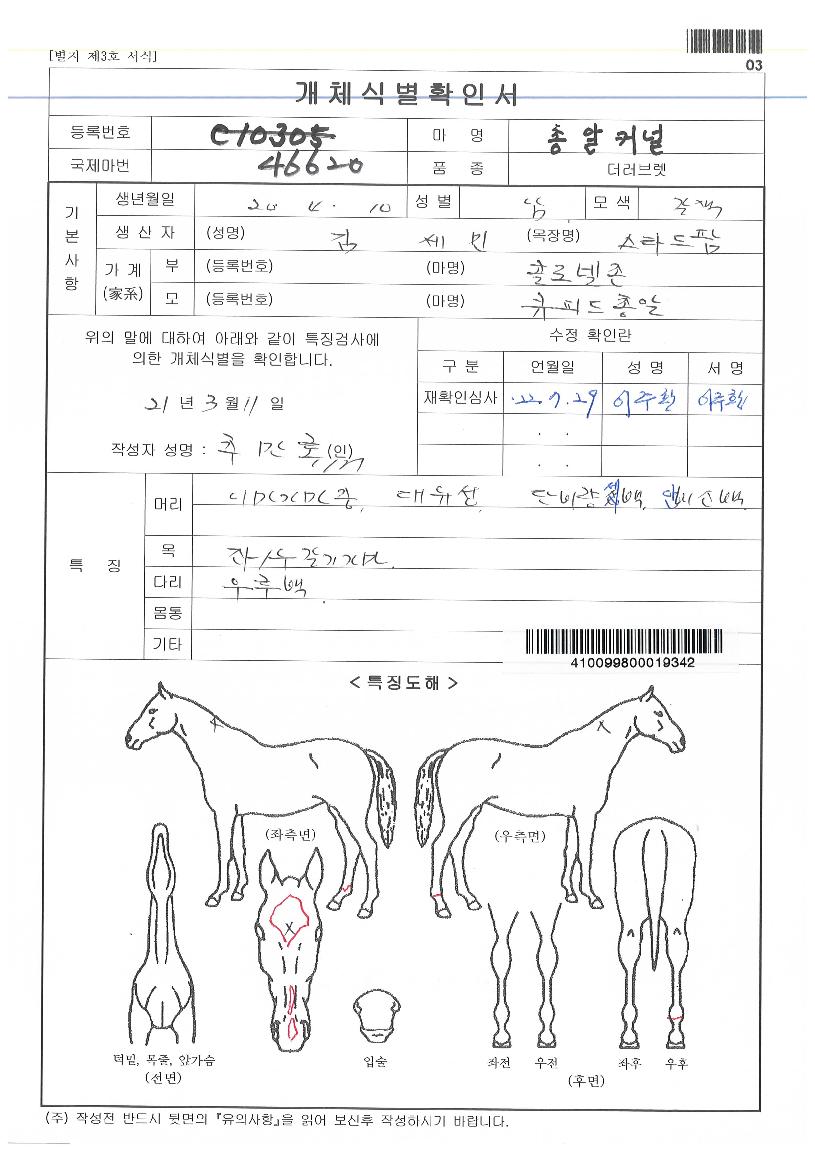 [별지 제3호 서식]
03
개체식별확인서
등록번호 C10305 마 명 총알커널
국제마번 46620 품 종 더러브렛
기본사항
생년월일 20 4. 10 성별 모색
생산자 (성명) 김 세 민 (목장명) 스타드팜
가계 (家系) 부 (등록번호) (마명) 콜로넬존
모 (등록번호) (마명) 큐피드총알
위의 말에 대하여 아래와 같이 특징검사에
의한 개체식별을 확인합니다.
21년 3월 11일
작성자 성명 : (인)
수정 확인란
구분 연월일 성명 서명
재확인심사 22.7.29 이주환 이주환
. .
. .
특 징
머리
목
다리 우후백
몸통
기타
410099800019342
< 특징도해 >
(좌측면) (우측면)
턱밑, 목줄, 앞가슴 입술 좌전 우전 좌후 우후
(전면) (후면)
(주) 작성전 반드시 뒷면의 『유의사항』을 읽어 보신후 작성하시기 바랍니다.